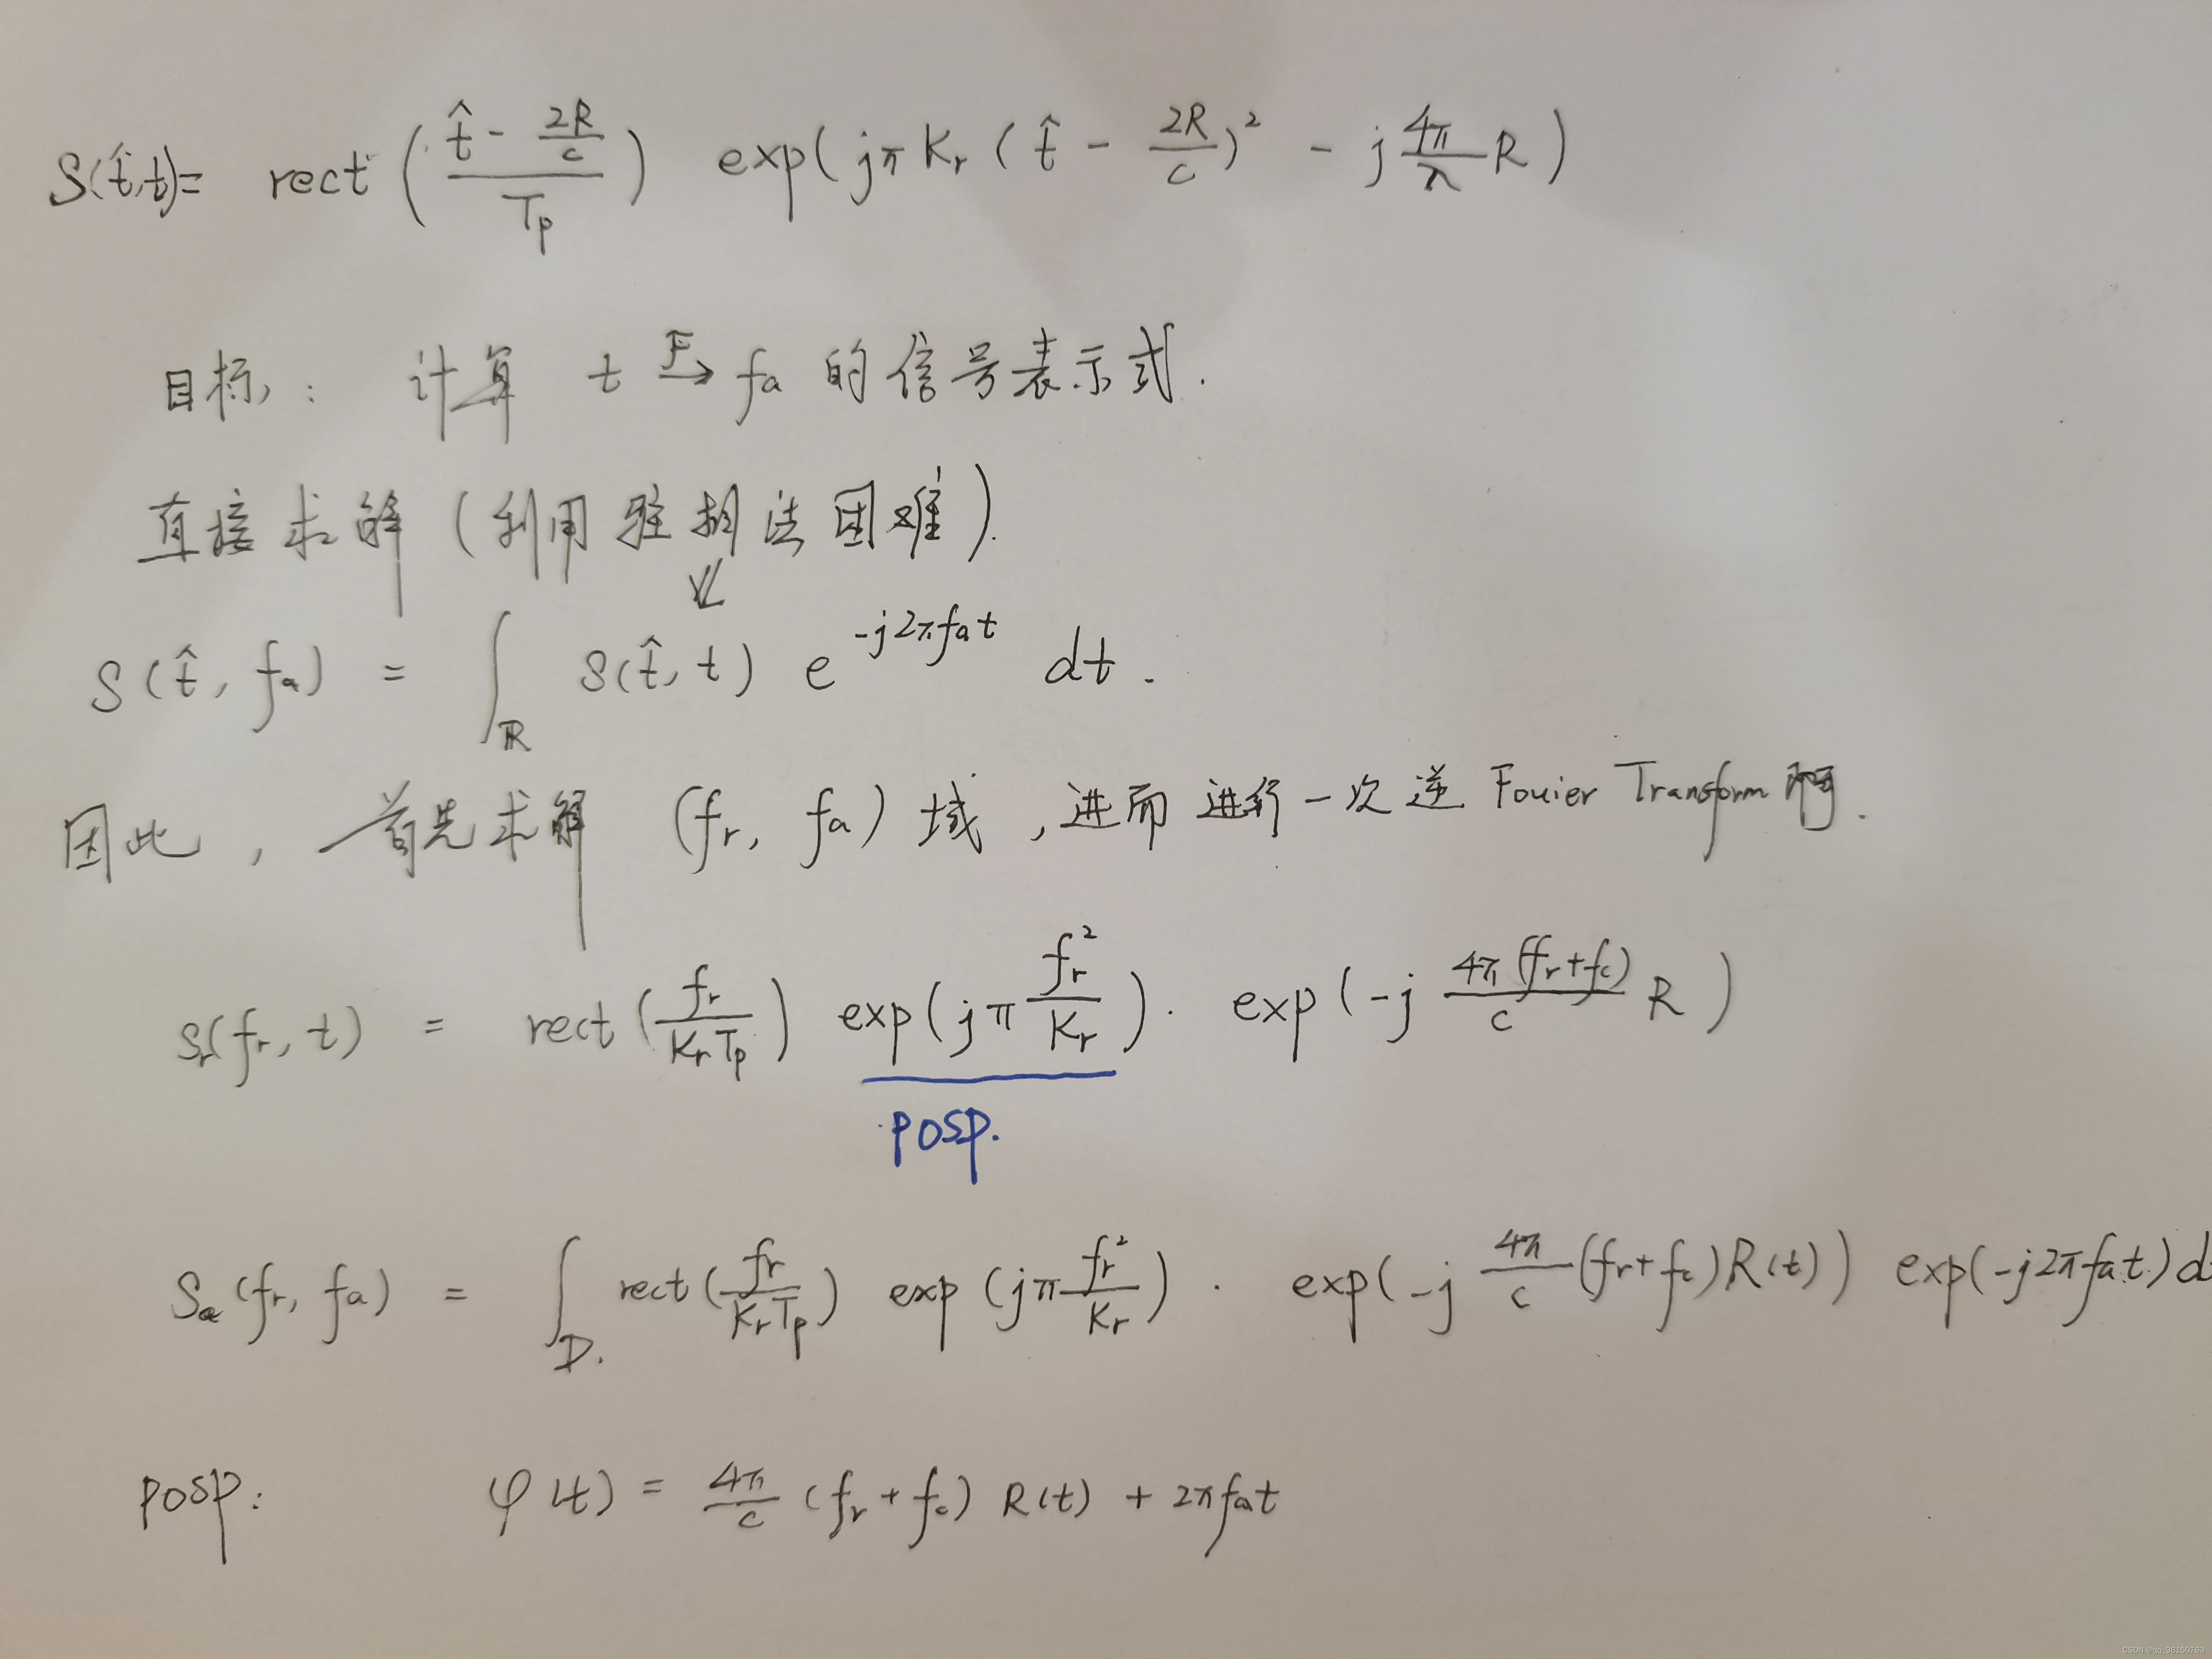 S(t̂,t)= rect((t̂ - 2R/c)/Tp) exp(jπKr(t̂ - 2R/c)² - j4π/λ R)
目标: 计算 t F→ fa 的信号表示式.
直接求解(利用驻相法困难).
S(t̂, fa) = ∫R S(t̂, t) e^-j2πfat dt.
因此, 首先求解 (fr, fa)域,进而进行一次逆Fouier Transform啊.
Sr(fr, t) = rect(fr/KrTp) exp(jπ fr²/Kr)· exp(-j 4π(fr+fc)/c R)
POSP.
Sa(fr, fa) = ∫D. rect(fr/KrTp) exp(jπ fr²/Kr) · exp(-j 4π/c (fr+fc)R(t)) exp(-j2πfat)d
POSP: φ(t) = 4π/c (fr+fc) R(t) + 2πfat
CSDN @qq_36150763